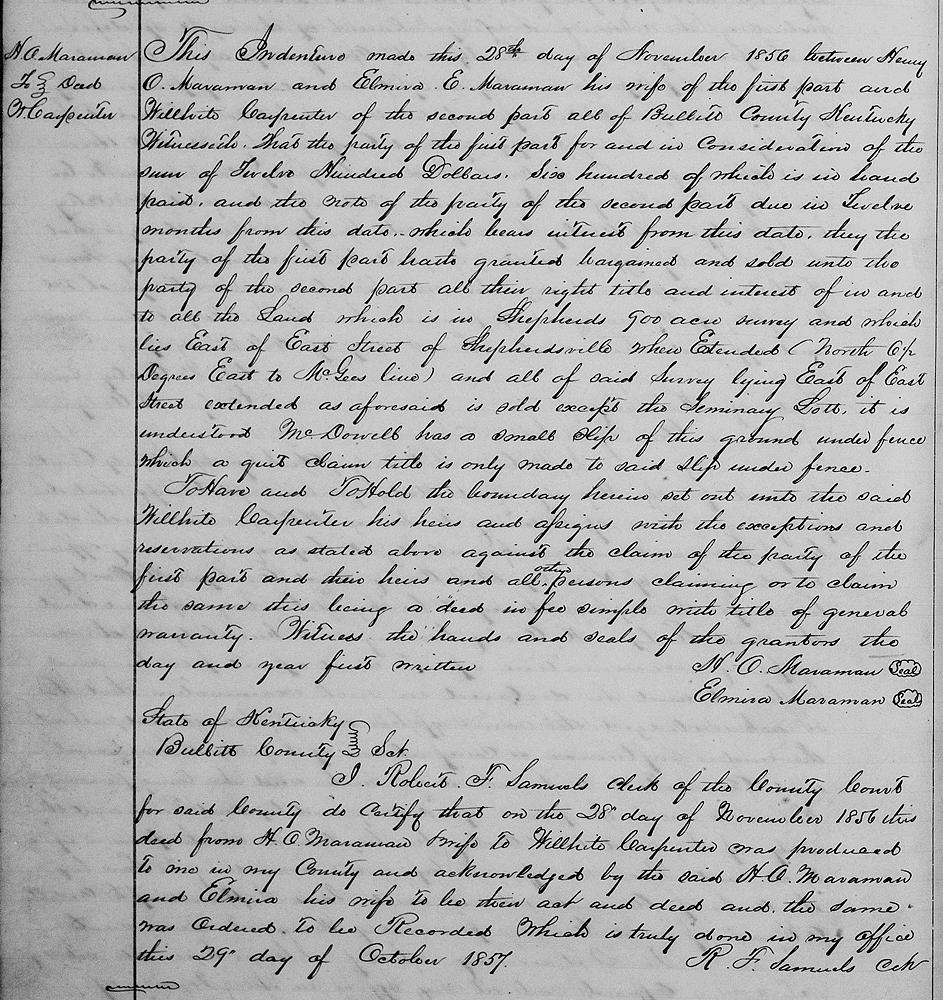 H. O. Maraman
To } Deed
W. Carpenter
This Indenture made this 28th day of November 1856 between Henry
O. Maraman and Elmira E. Maraman his wife of the first part and
Willhite Carpenter of the second part all of Bullitt County Kentucky
Witnesseth. That the party of the first part for and in Consideration of the
sum of Twelve Hundred Dollars. Six hundred of which is in hand
paid. and the note of the party of the second part due in Twelve
months from this date. which bears interest from this date. they the
party of the first part hath granted bargained and sold unto the
party of the second part all their right title and interest of in and
to all the Land which is in Shepherds 900 acre survey and which
lies East of East Street of Shepherdsville when Extended (North 6½
Degrees East to McGees line) and all of said Survey lying East of East
Street extended as aforesaid is sold except the Seminary Lott. it is
understood McDowell has a small Slip of this ground under fence
which a quit claim title is only made to said Slip under fence.
To Have and To Hold the boundary herein set out unto the said
Willhite Carpenter his heirs and assigns with the exceptions and
reservations as stated above against the claim of the party of the
first part and their heirs and all other persons claiming or to claim
the same this being a deed in fee simple with title of general
warranty. Witness the hands and seals of the grantors the
day and year first written
H. O. Maraman Seal
Elmira Maraman Seal
State of Kentucky
Bullitt County } Sct
I. Robert. F. Samuels Clerk of the County Court
for said County do Certify that on the 28" day of November 1856 this
deed from H. O. Maraman & wife to Willhite Carpenter was produced
to me in my County and acknowledged by the said H. O. Maraman
and Elmira his wife to be their act and deed and the same
was Ordered to be Recorded Which is truly done in my office
this 29" day of October 1857.
R. F. Samuels Clk